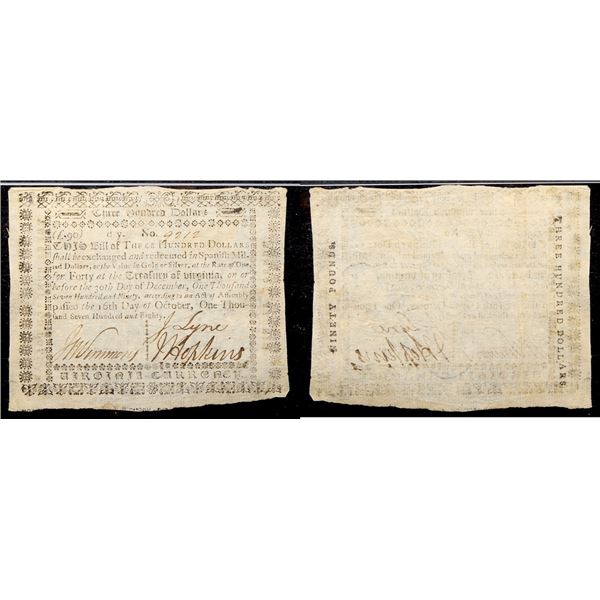 Three Hundred Dollars
£.90 d y. No.
THIS Bill of THREE HUNDRED DOLLARS
shall be exchanged and redeemed in Spanish Mil-
led Dollars, or the Value in Gold or Silver, at the Rate of One
for Forty at the Treasury of Virginia, on or
before the 30th Day of December, One Thousand
Seven Hundred and Ninety, according to an Act of Assembly
passed the 16th Day of October, One Thou-
sand Seven Hundred and Eighty.
J Lyne
J Hopkins
VIRGINIA CURRENCY
NINETY POUNDS.
THREE HUNDRED DOLLARS.